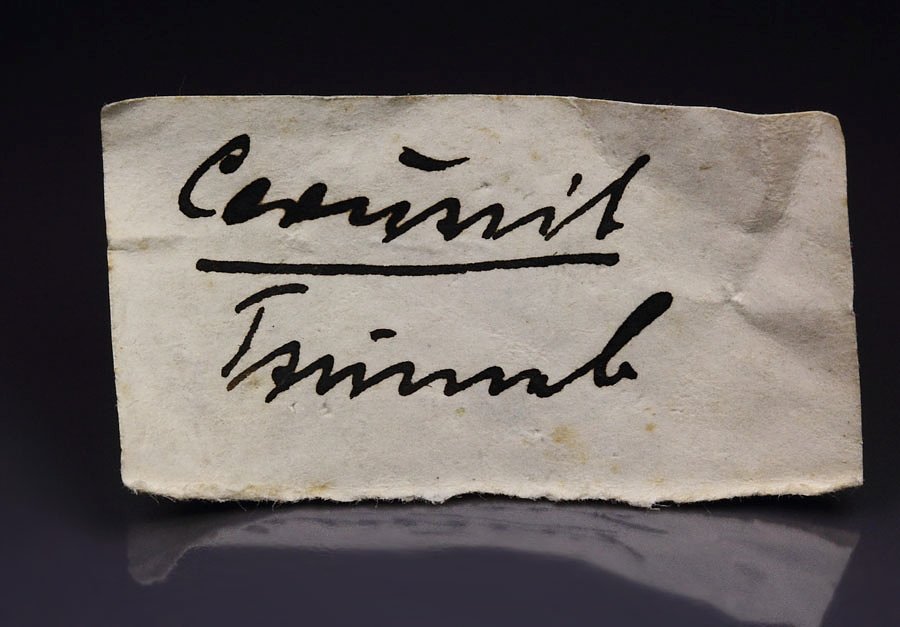 Cerussit
Tsumeb